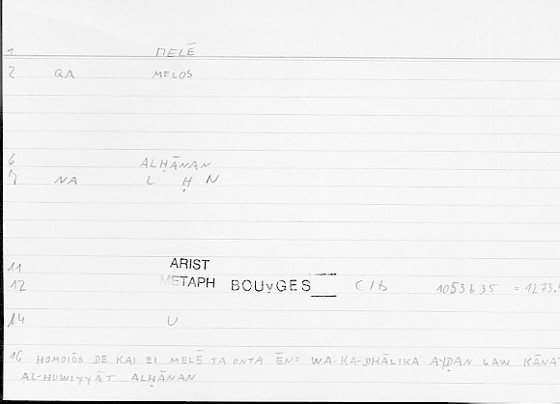 1 MELĒ
2 QA MELOS
6 ALḤĀNAN
7 NA L Ḥ N
11 ARIST
12 METAPH BOUYGES C/b 1053b35 = 1273.
14 U
16 HOMOIŌS DE KAI EI MELĒ TA ONTA ĒN= WA-KA-DHĀLIKA AYḌAN LAW KĀNAT
AL-HUWIYYĀT ALḤĀNAN